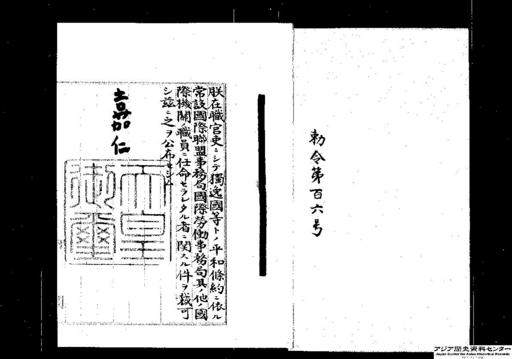 勅令第百六号
朕在職官吏ニシテ獨逸國等トノ平和條約ニ依ル
常設國際聯盟事務局國際勞働事務局其ノ他ノ國
際機關ノ職員ニ任命セラレタル者ニ関スル件ヲ裁可
シ茲ニ之ヲ公布セシム
嘉仁
天皇
御璽
アジア歴史資料センター
Japan Center for Asian Historical Records